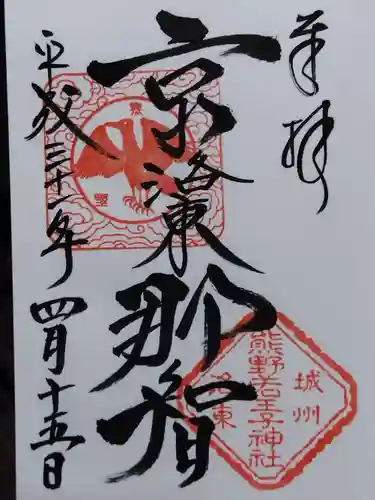 奉拝
京洛東
那智
平成三十一年
四月十五日
城州
熊野若王子神社
洛東